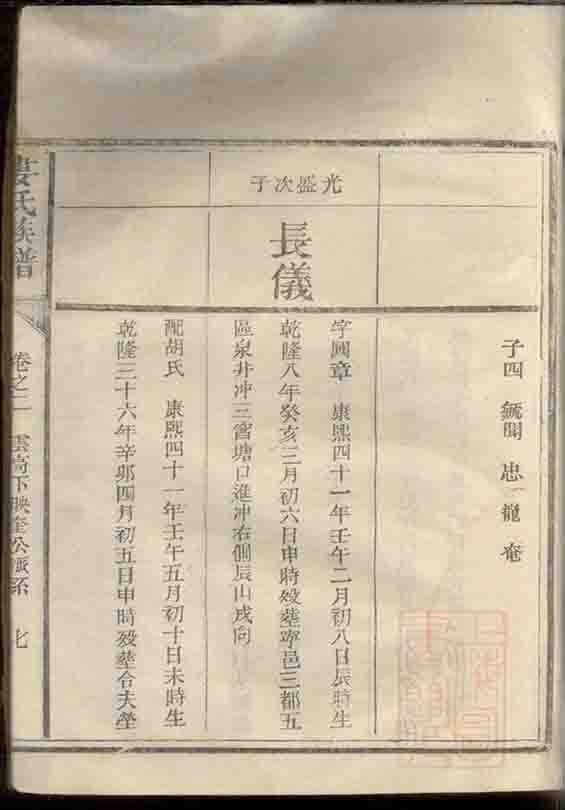 子四 毓閏 忠一 龍 奄
光盛次子
長儀
字國章 康熙四十一年壬午二月初八日辰時生
乾隆八年癸亥三月初六日申時歿塟寧邑三都五
區泉井冲三窨塘口進冲右側辰山戌向
配胡氏 康熙四十一年壬午五月初十日未時生
乾隆三十六年辛卯四月初五日申時歿塟合夫塋
婁氏族譜
卷之二 雲高下映奎公派系 七